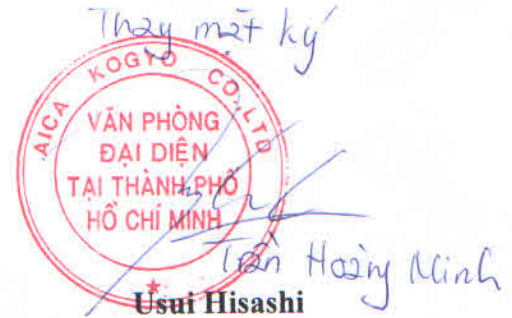 Thay mặt ký
AICA KOGYO CO.,LTD
VĂN PHÒNG
ĐẠI DIỆN
TẠI THÀNH PHỐ
HỒ CHÍ MINH
Trần Hoàng Minh
Usui Hisashi